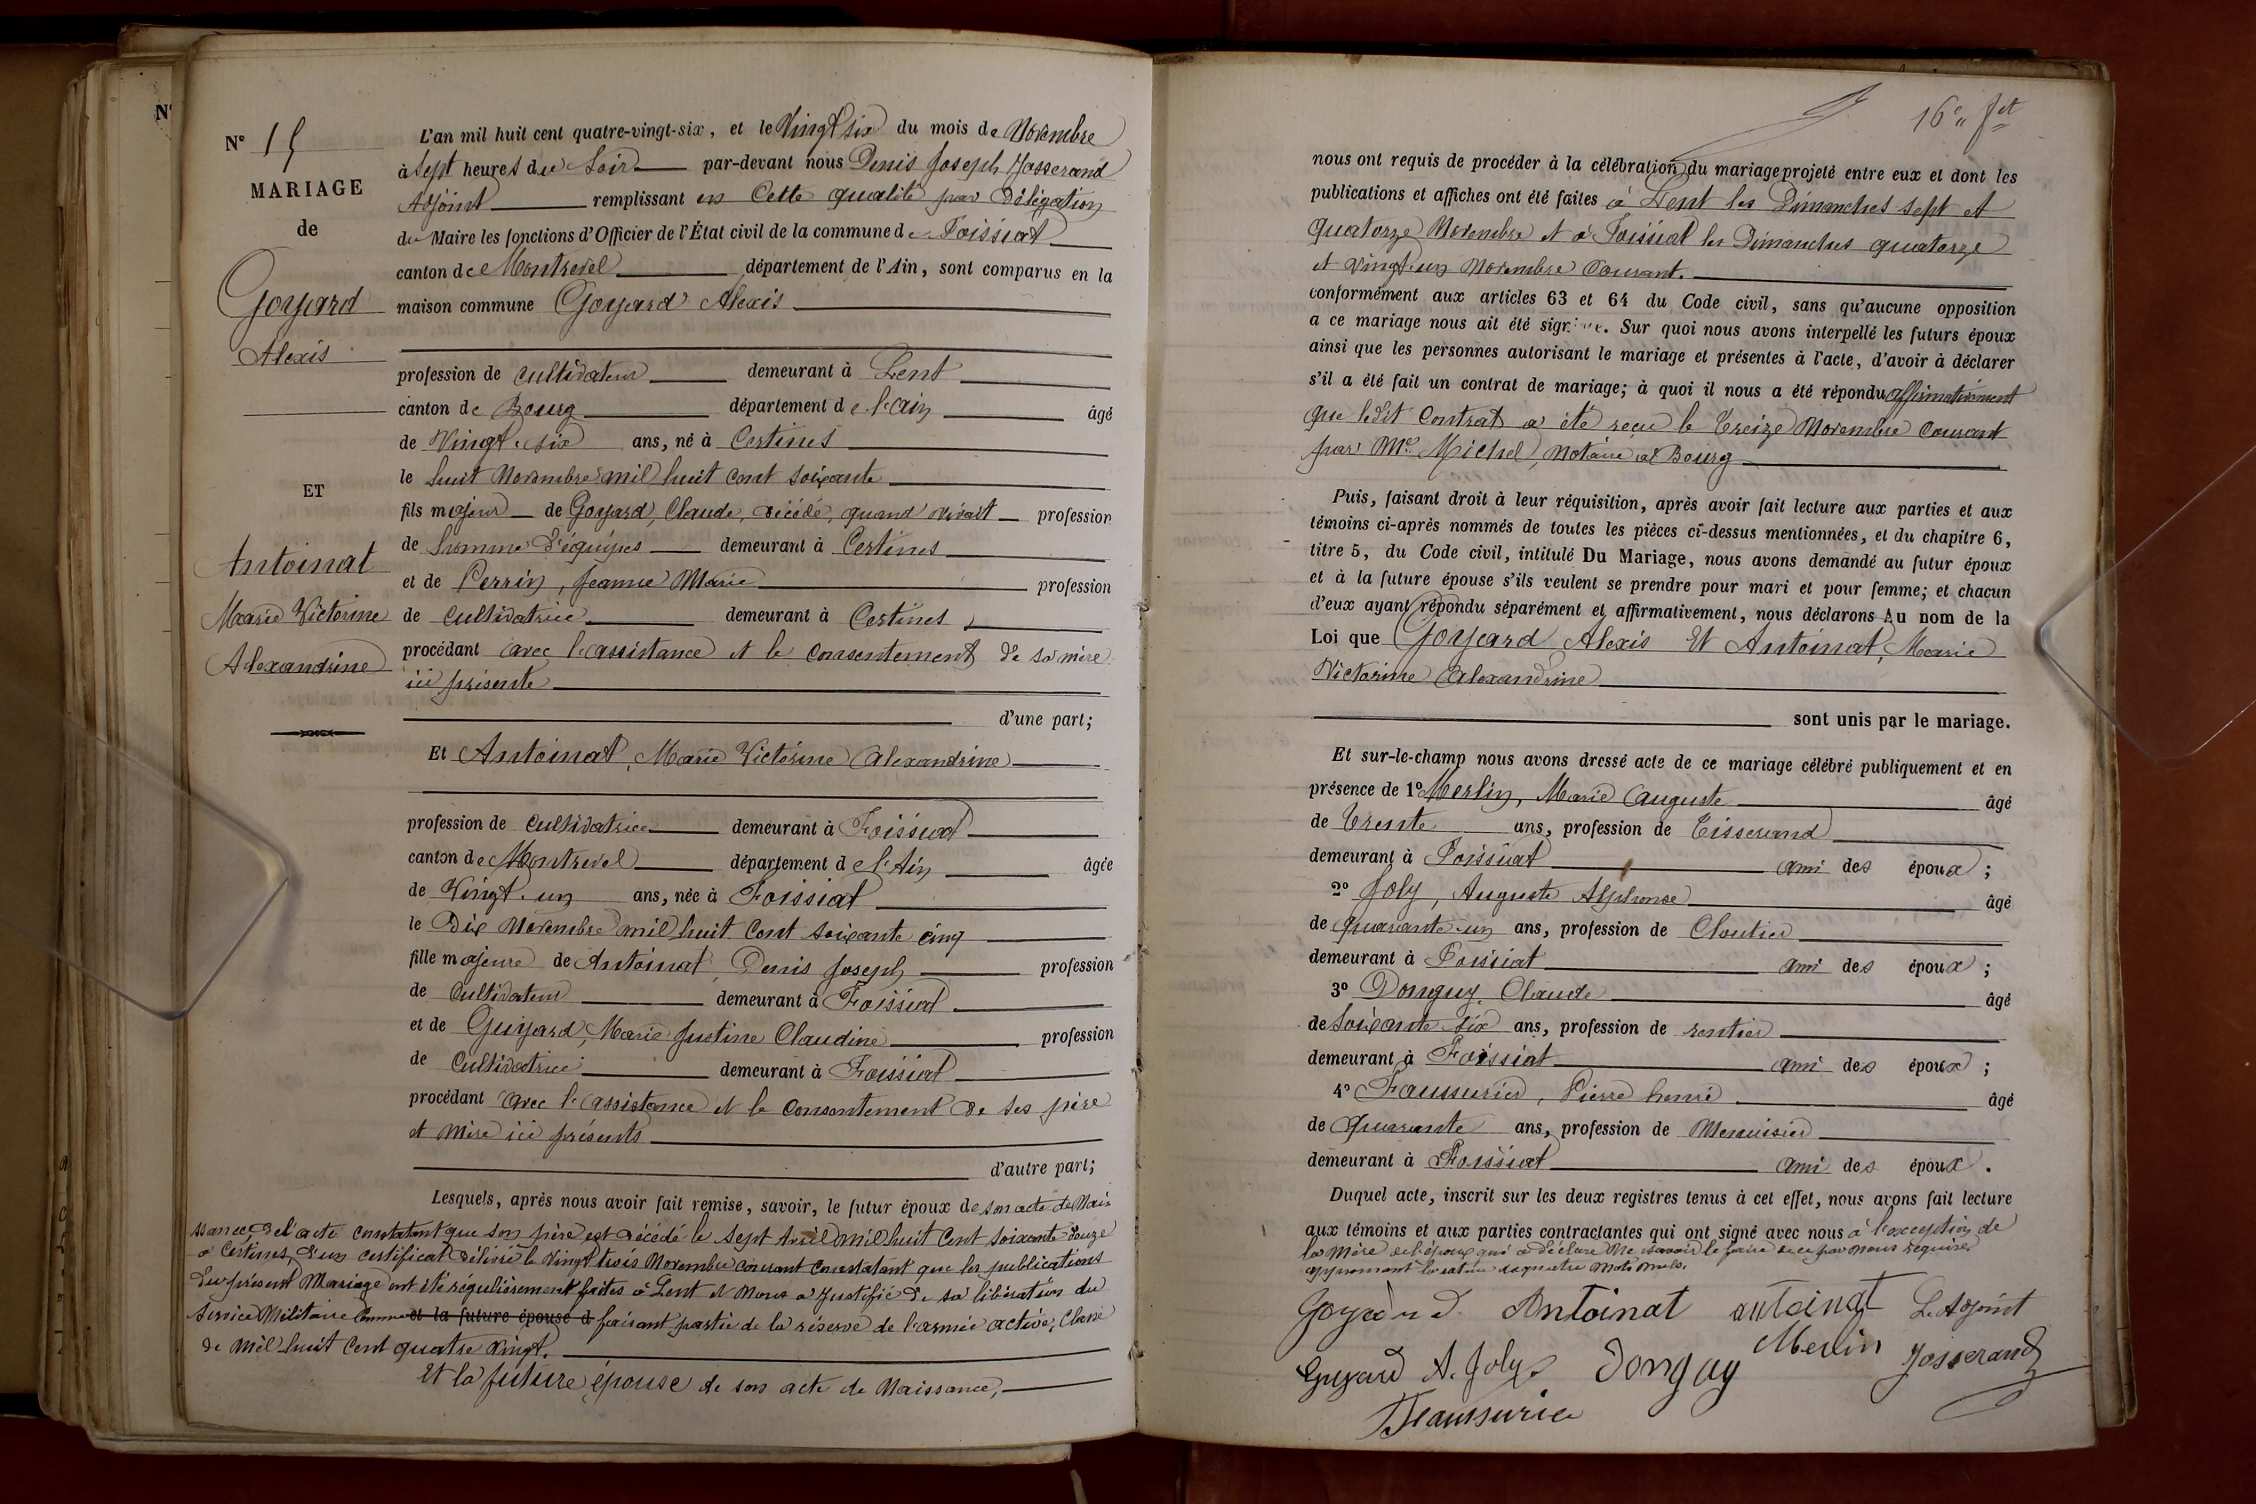 N° 15
MARIAGE
de
Goyard
Alexis
ET
Antoinat
Marie Victorine
Alexandrine
L'an mil huit cent quatre-vingt-six, et le Vingt six du mois de Novembre
à Sept heures du Soir par-devant nous Denis Joseph Josserand
Adjoint remplissant en Cette qualité par Délégation
du Maire les fonctions d'Officier de l'État civil de la commune de Foissiat
canton de Montrevel département de l'Ain, sont comparus en la
maison commune Goyard Alexis
profession de cultivateur demeurant à Lent
canton de Bourg département de l'ain âgé
de Vingt-six ans, né à Certines
le huit Novembre mil huit cent soixante
fils majeur de Goyard, Claude, décédé, quand vivait profession
de homme d'équipes demeurant à Certines
et de Perrin, Jeanne Marie profession
de cultivatrice demeurant à Certines
procédant avec l'assistance et le consentement de sa mère
ici présente
d'une part;
Et Antoinat, Marie Victorine Alexandrine
profession de cultivatrice demeurant à Foissiat
canton de Montrevel département de l'Ain âgée
de Vingt-un ans, née à Foissiat
le Dix Novembre mil huit Cent soixante cinq
fille majeure de Antoinat, Denis Joseph profession
de Cultivateur demeurant à Foissiat
et de Guyard, Marie Justine Claudine profession
de Cultivatrice demeurant à Foissiat
procédant avec l'assistance et le Consentement de ses père
et mère ici présents
d'autre part;
Lesquels, après nous avoir fait remise, savoir, le futur époux de son acte de Nais
ssance, de l'acte constatant que son père est décédé le sept Avril mil huit Cent soixante-douze
à Certines, d'un certificat délivré le Vingt trois Novembre courant constatant que les publications
du présent Mariage ont été régulièrement faites à Lent et nous a justifié de sa libération du
service Militaire comme et la future épouse d faisant partie de la réserve de l'armée active, Classe
de mil huit Cent quatre Vingt.
Et la future épouse de son acte de Naissance,
16e f et
nous ont requis de procéder à la célébration du mariage projeté entre eux et dont les
publications et affiches ont été faites à Lent les Dimanches sept et
quatorze Novembre et à Foissiat les Dimanches quatorze
et vingt-un Novembre Courant.
conformément aux articles 63 et 64 du Code civil, sans qu'aucune opposition
a ce mariage nous ait été signifiée. Sur quoi nous avons interpellé les futurs époux
ainsi que les personnes autorisant le mariage et présentes à l'acte, d'avoir à déclarer
s'il a été fait un contrat de mariage; à quoi il nous a été répondu affirmativement
que ledit Contrat a été reçu le Treize Novembre Courant
par Me Michel, notaire à Bourg
Puis, faisant droit à leur réquisition, après avoir fait lecture aux parties et aux
témoins ci-après nommés de toutes les pièces ci-dessus mentionnées, et du chapitre 6,
titre 5, du Code civil, intitulé Du Mariage, nous avons demandé au futur époux
et à la future épouse s'ils veulent se prendre pour mari et pour femme; et chacun
d'eux ayant répondu séparément et affirmativement, nous déclarons Au nom de la
Loi que Goyard Alexis Et Antoinat, Marie
Victorine Alexandrine
sont unis par le mariage.
Et sur-le-champ nous avons dressé acte de ce mariage célébré publiquement et en
présence de 1° Merlin, Marie Auguste âgé
de Trente ans, profession de Tisserand
demeurant à Foissiat ami des époux;
2° Joly, Auguste Alphonse âgé
de quarante-un ans, profession de Cloutier
demeurant à Foissiat ami des époux;
3° Donguy Claude âgé
de soixante-six ans, profession de rentier
demeurant à Foissiat ami des époux;
4° Faussurier, Pierre henri âgé
de quarante ans, profession de Menuisier
demeurant à Foissiat ami des époux.
Duquel acte, inscrit sur les deux registres tenus à cet effet, nous avons fait lecture
aux témoins et aux parties contractantes qui ont signé avec nous à l'exception de
la mère de l'époux qui a déclaré ne savoir le faire de ce par nous requise
approuvant la rature de quatre mots nuls.
Goyard Antoinat antoinat L'Adjoint
Guyard A. Joly Donguy Merlin Josserand
Faussurier